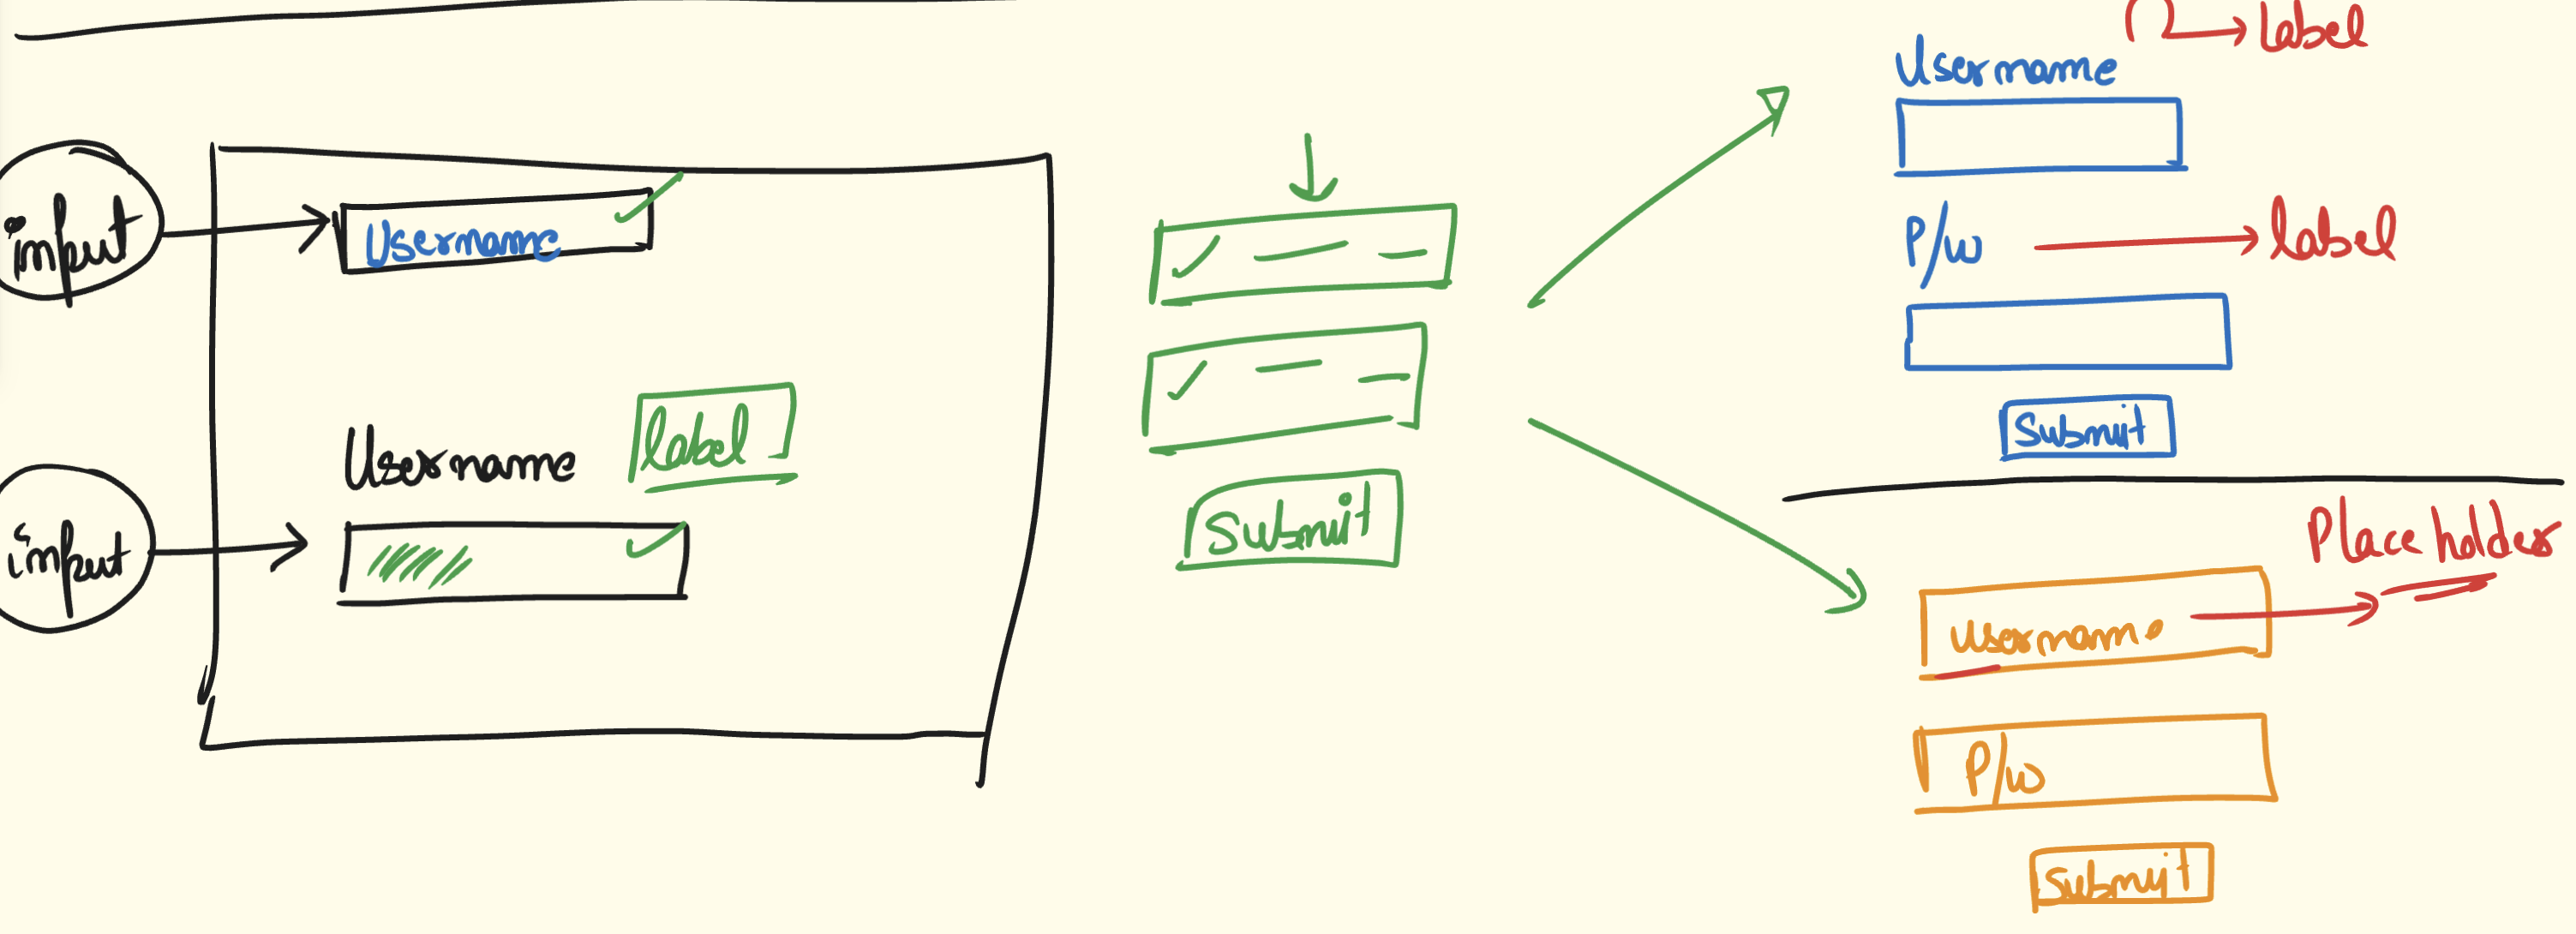 input
Username
Username
label
input
Submit
label
Username
P/w
label
Submit
Place holder
username
P/w
Submit